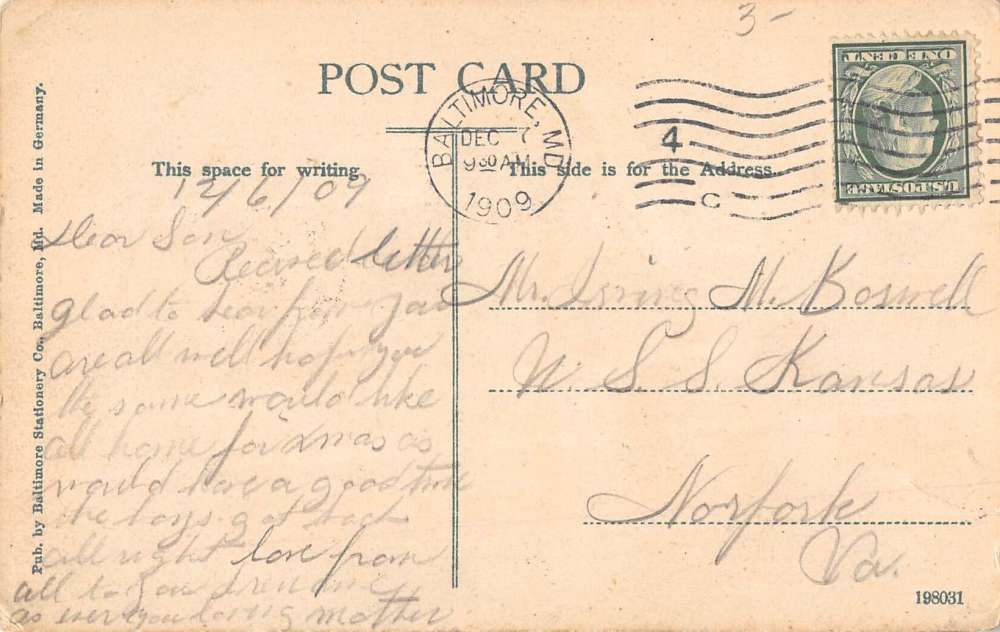 3-
POST CARD
BALTIMORE, MD
DEC 7
9 30 AM
1909
4
C
ONE CENT
U.S. POSTAGE
This space for writing
This side is for the Address.
12/6/09
Dear Son
Recieved letter
glad to hear from you
are all well hope you
the same would like
all home for Xmas as
would have a good time
the boys got back
all right love from
all to you
as ever your loving mother
Mr. Irving M. Boswell
U. S. S. Kansas
Norfork
Va.
Pub. by Baltimore Stationery Co., Baltimore, Md. Made in Germany.
198031